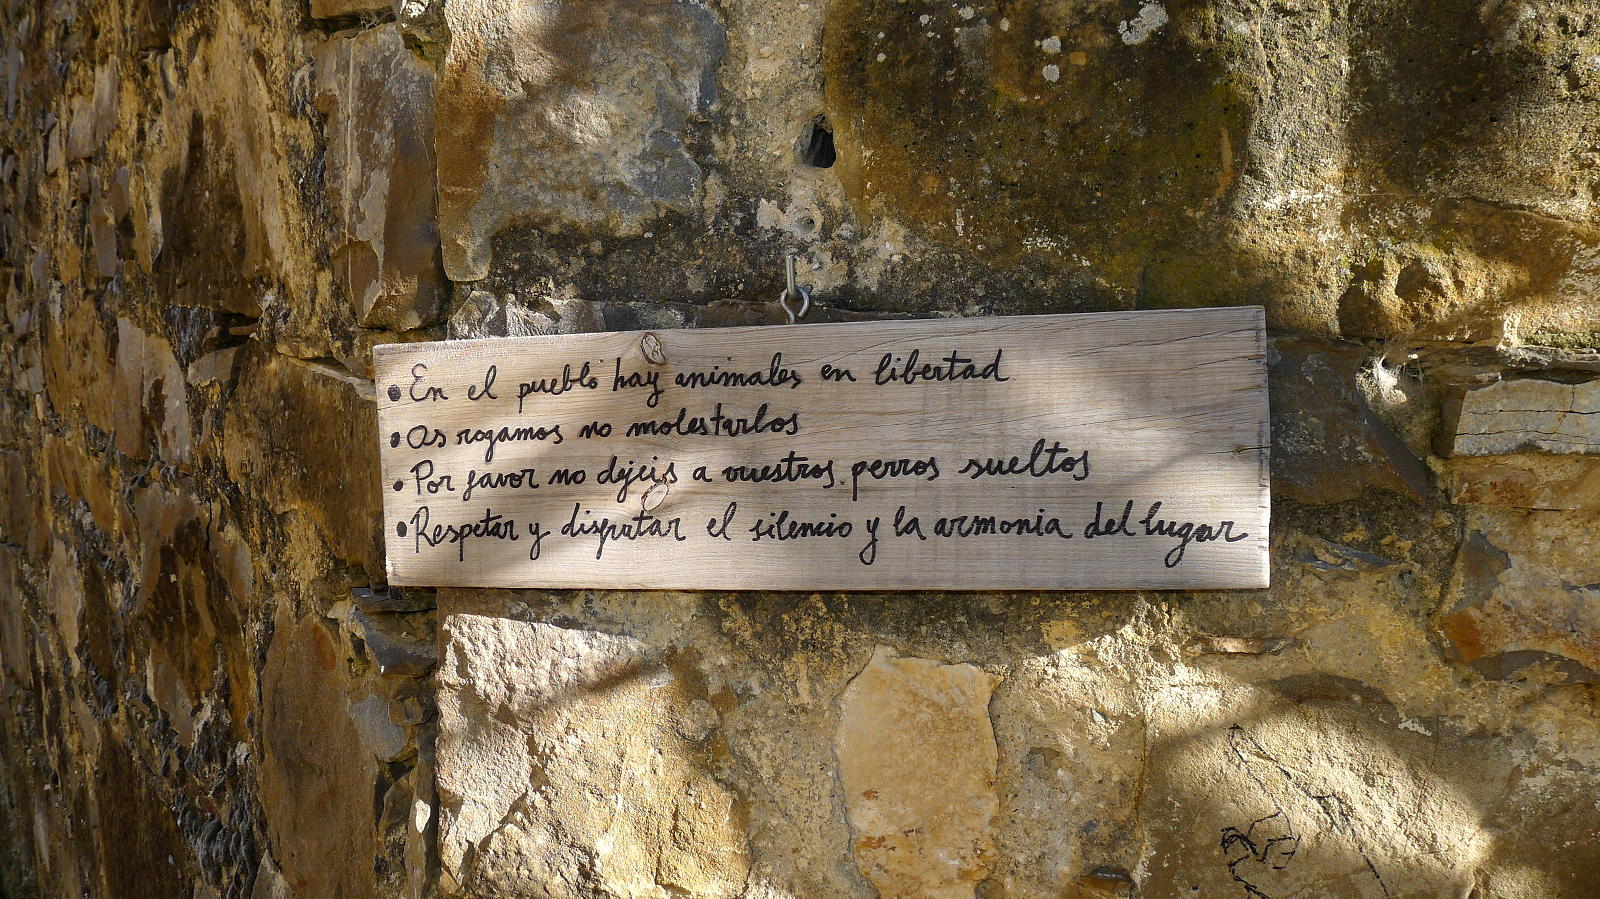 • En el pueblo hay animales en libertad
• Os rogamos no molestarlos
• Por favor no dejeis a vuestros perros sueltos
• Respetar y disfrutar el silencio y la armonia del lugar